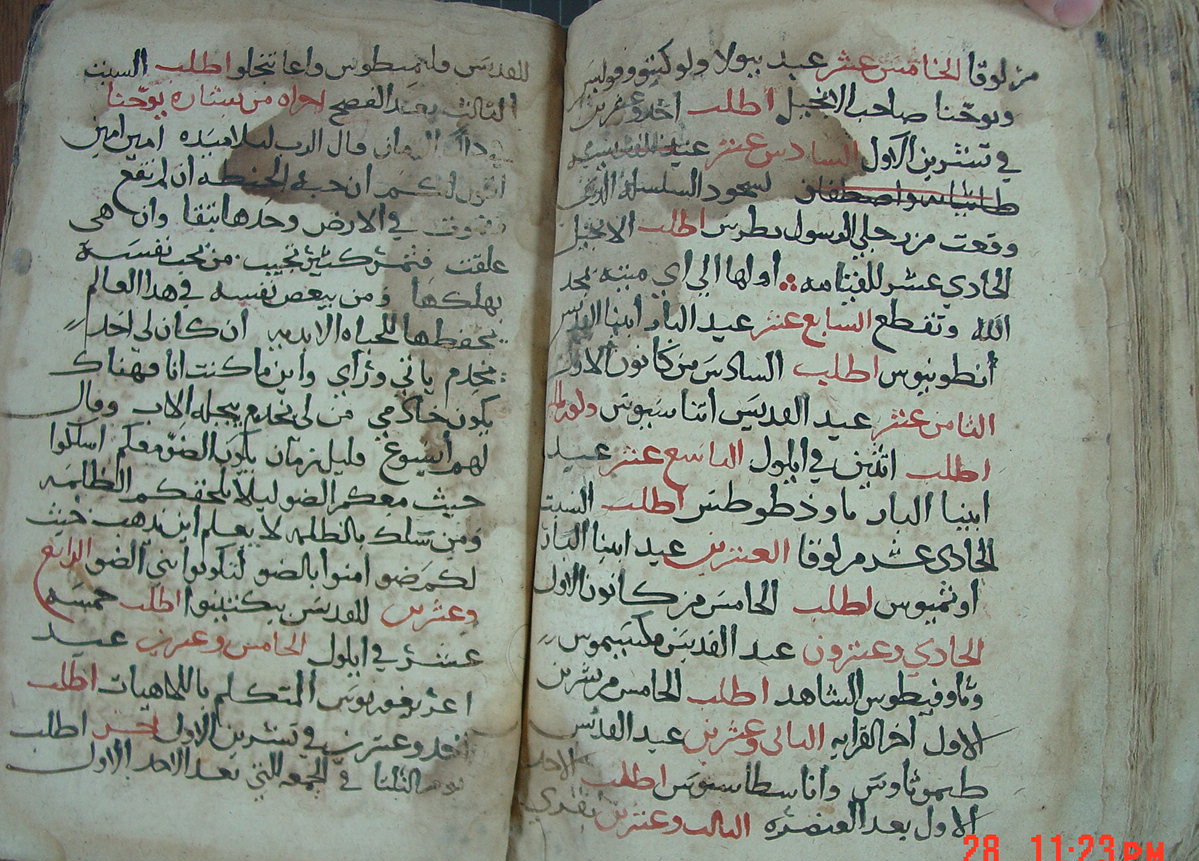 من لوقا الخامس عشر عيد ببولا ولوكيتوو
ويوحنا صاحب الانجيل اطلب احد وعشرين
في تشرين الاول السادس عشر عيد
لسجود السلسلة الذي
وقعت من رجلي الرسول بطرس اطلب الانجيل
الحادي عشر للقيامه اولها الي اي ميتة يمجد
الله وتقطع السابع عشر عيد البار ابينا القديس
أنطونيوس اطلب السادس من كانون الاول
الثامن عشر عيد القديس اتناسيوس
اطلب اثنين في ايلول التاسع عشر عيد
ابينا البار اطلب السبت
الحادي عشر من لوقا العشرين عيد ابينا البار
اوثميوس اطلب الخامس من كانون الاول
الحادي وعشرون عيد القديس مكسيموس
الشاهد اطلب الخامس من تشرين
الاول اخر القرايه الثاني وعشرين عيد القديس
طيموثاوس واناسطاسيوس اطلب الاحد
الاول بعد العنصره الثالث وعشرين
للقديس اطلب السبت
الثالث بعد الفصح من بشارة يوحنا
في ذاك الزمان قال الرب لتلاميذه امين امين
اقول لكم ان حبة الحنطه ان لم تقع
وتموت في الارض وحدها تبقا وان هي
من يحب نفسه
يهلكها ومن يبغض نفسه في هذا العالم
يحفظها للحياه الابديه ان كان لي احد
يخدم ياتي وراي واين ما كنت انا فهناك
يكون خادمي من لي يخدم يبجله الاب وقال
لهم ايسوع قليل زمان يكون الضو معكم اسلكوا
حيث معكم الضو ليلا يلحقكم الظلمه
ومن سلك بالظلمه لا يعلم اين يذهب حيث
لكم ضو امنوا بالضو لتكونوا بني الضو الرابع
وعشرين للقديس اطلب خمسه
عشر في ايلول الخامس وعشرين عيد
اغريغوريوس المتكلم باللاهيات اطلب
احد وعشرين في تشرين الاول اطلب
يوم الثلثا في الجمعه التي بعد الاحد الاول
28 11:23 PM